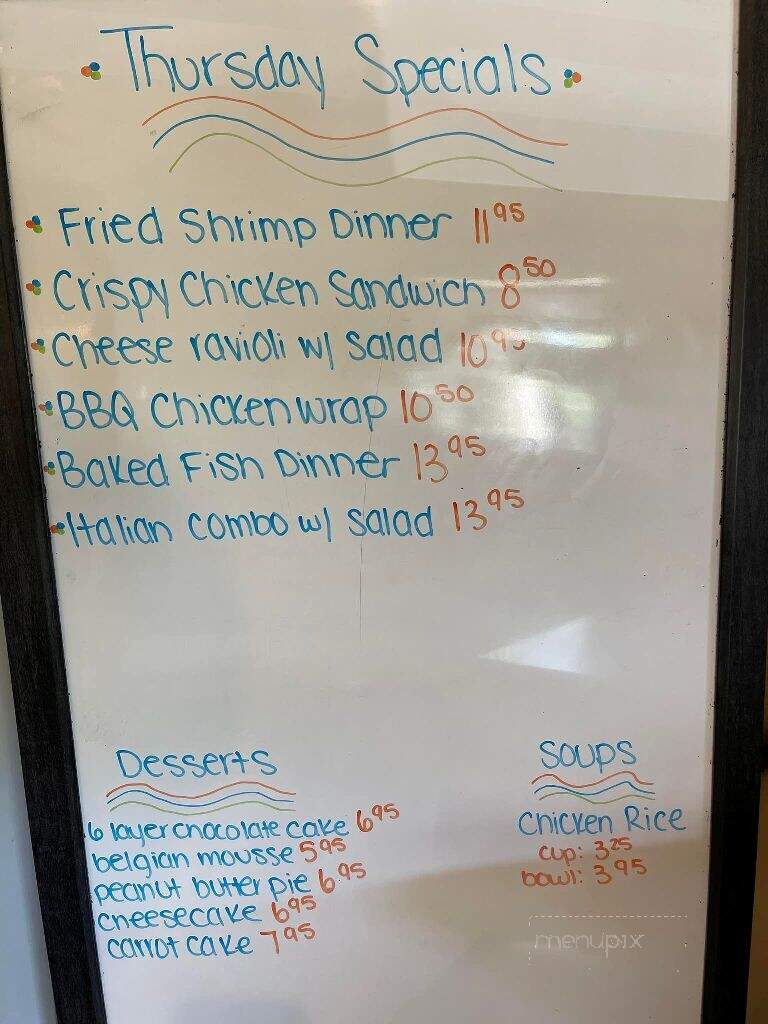 Thursday Specials
Fried Shrimp Dinner 11 95
Crispy Chicken Sandwich 8 50
Cheese ravioli w/ salad 10 95
BBQ Chicken wrap 10 50
Baked Fish Dinner 13 95
Italian combo w/ salad 13 95
Desserts
6 layer chocolate cake 6 95
belgian mousse 5 95
peanut butter pie 6.95
cheesecake 6 95
carrot cake 7 95
Soups
Chicken Rice
cup: 3 25
bowl: 3 95
menupix